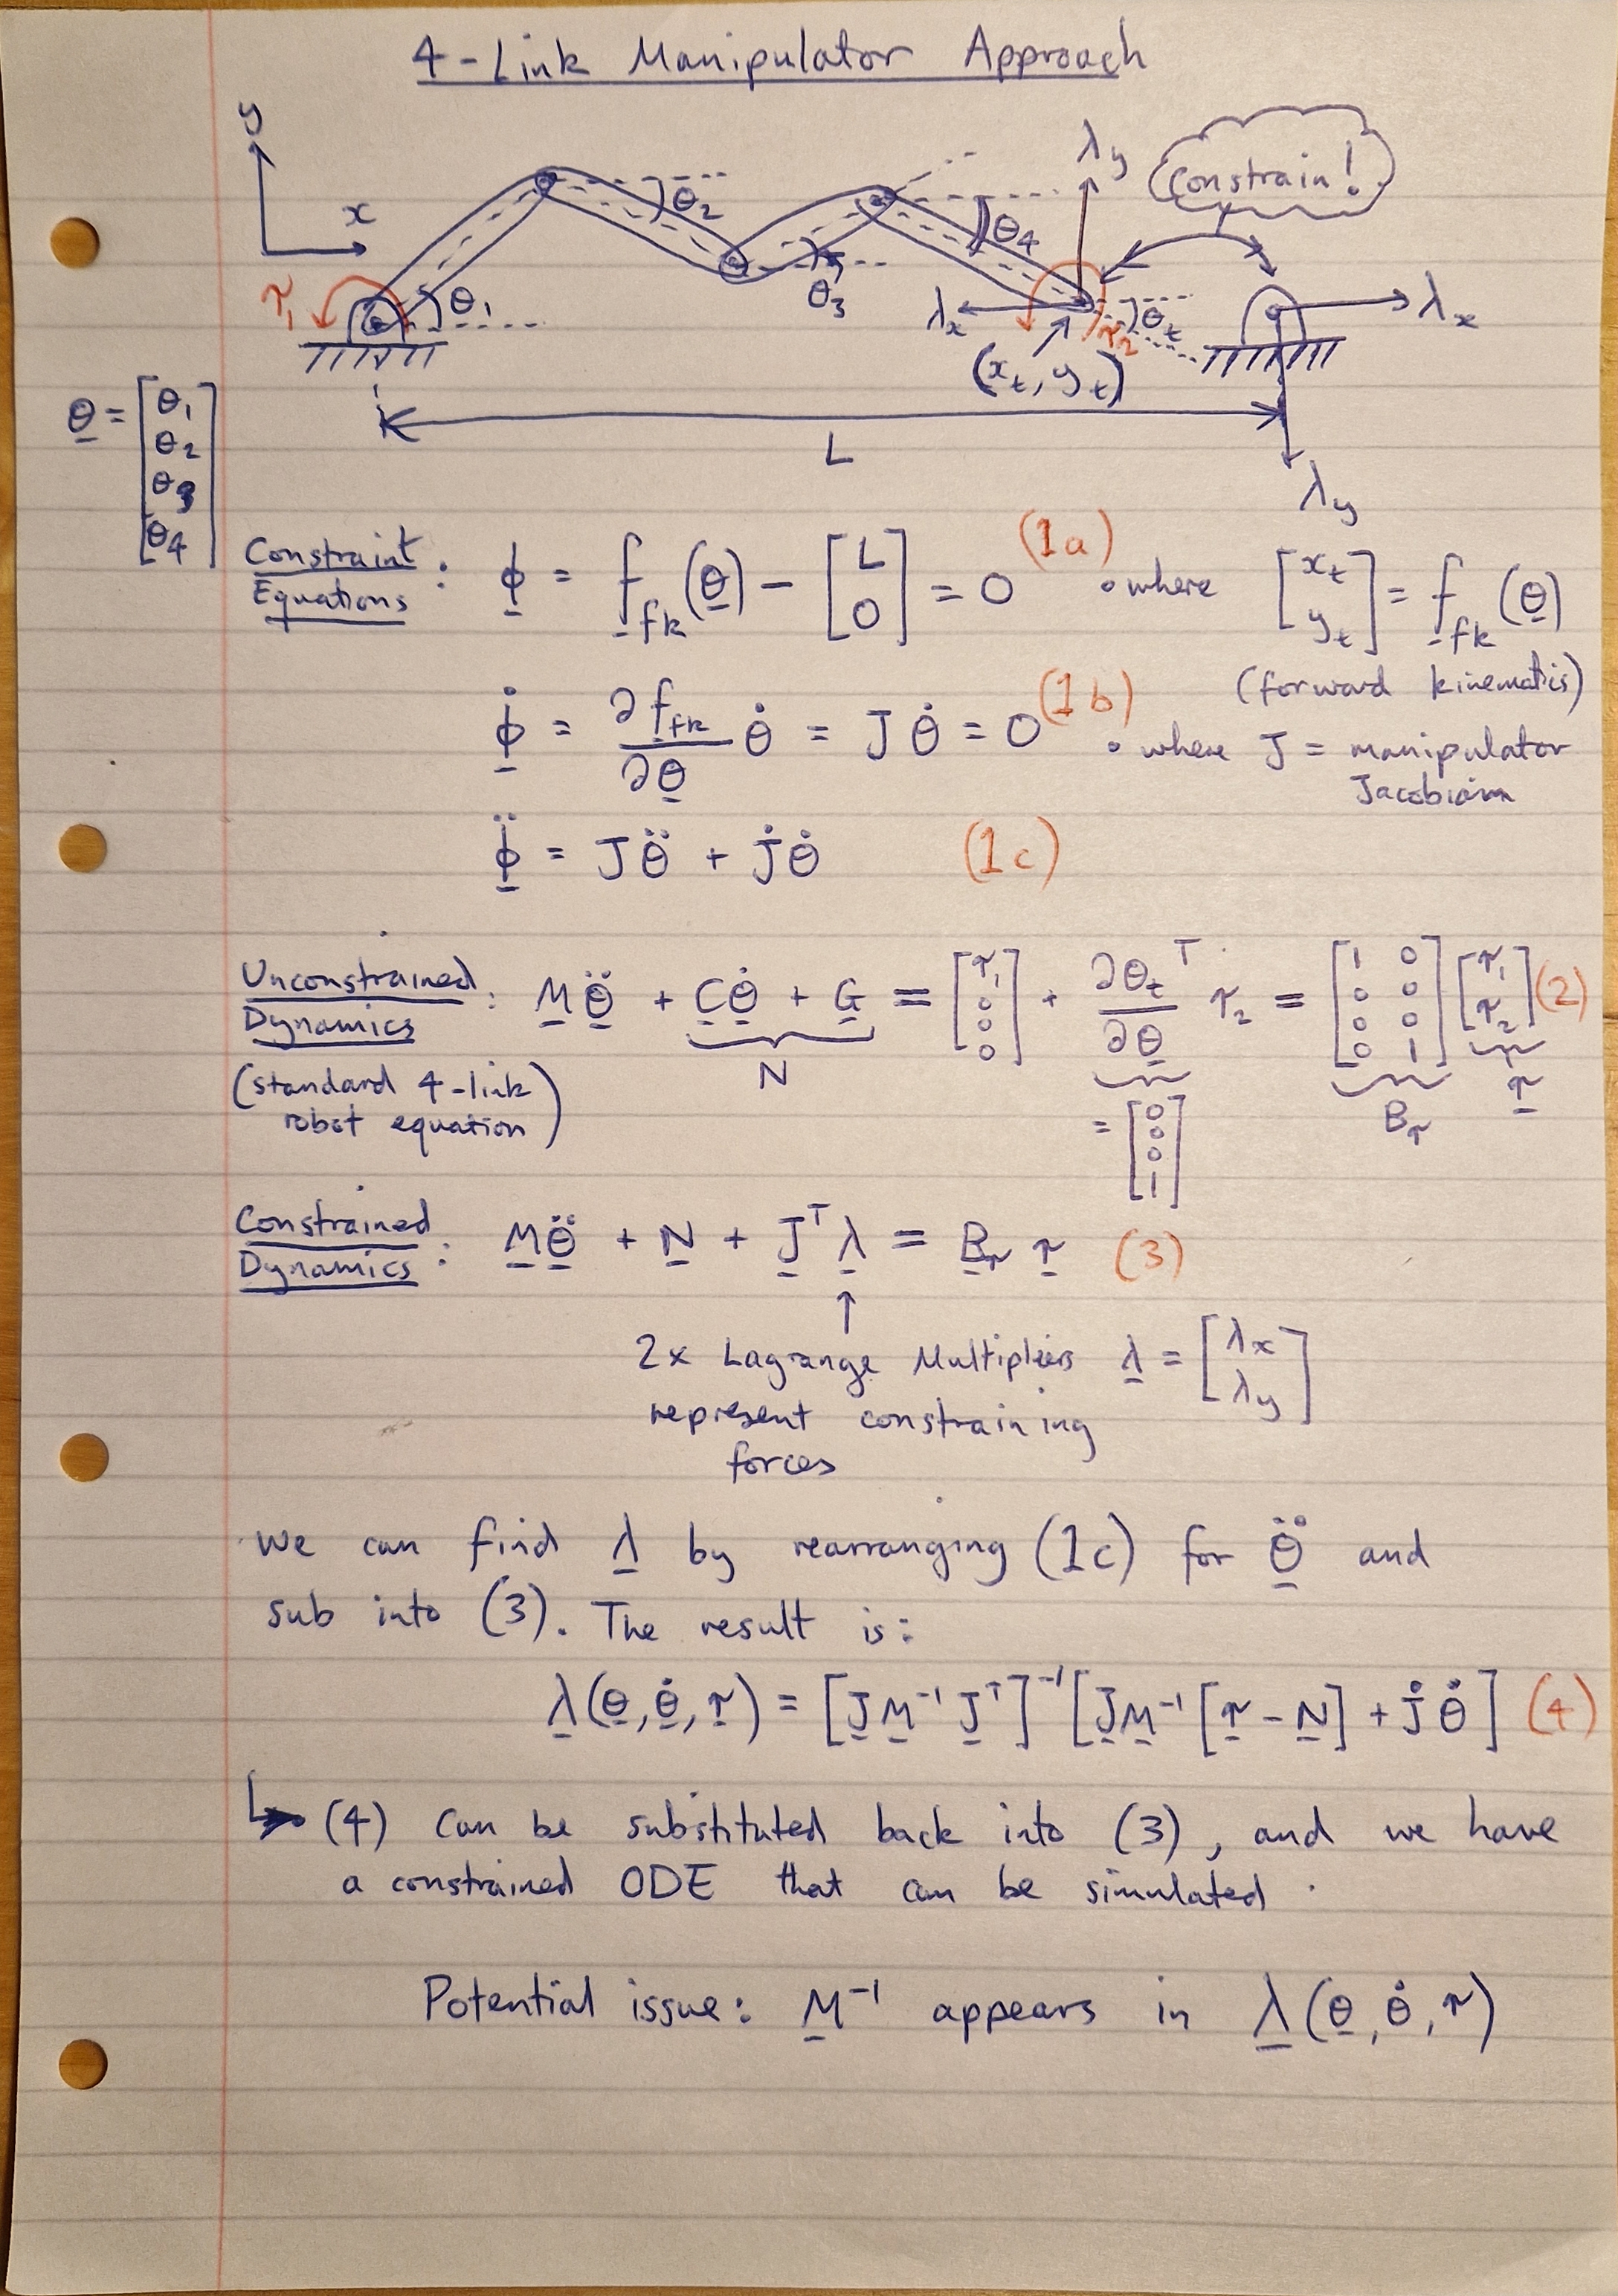 4-Link Manipulator Approach
y
x
τ₁
θ₁
θ₂
θ₃
θ₄
λy
Constrain!
λx
τ₂
θt
(xt, yt)
λx
L
λy
θ = [θ₁ θ₂ θ₃ θ₄]
Constraint Equations : ϕ = f_fk(θ) − [L 0] = 0 (1a) • where [xt yt] = f_fk(θ)
(forward kinematics)
ϕ̇ = ∂f_fk/∂θ θ̇ = J θ̇ = 0 (1b) • where J = manipulator
Jacobian
ϕ̈ = Jθ̈ + J̇θ̇ (1c)
Unconstrained Dynamics : Mθ̈ + Cθ̇ + G = [τ₁ 0 0 0] + ∂θt/∂θ ᵀ τ₂ = [1 0 0 0 0 0 0 1] [τ₁ τ₂] (2)
N
Bτ
τ
= [0 0 0 1]
(standard 4-link
robot equation)
Constrained Dynamics : Mθ̈ + N + Jᵀλ = Bτ τ (3)
↑
2x Lagrange Multipliers λ = [λx λy]
represent constraining
forces
we can find λ by rearranging (1c) for θ̈ and
sub into (3). The result is:
λ(θ, θ̇, τ) = [J M⁻¹ Jᵀ]⁻¹ [J M⁻¹ [τ − N] + J̇ θ̇] (4)
↳ (4) can be substituted back into (3), and we have
a constrained ODE that can be simulated.
Potential issue: M⁻¹ appears in λ(θ, θ̇, τ)